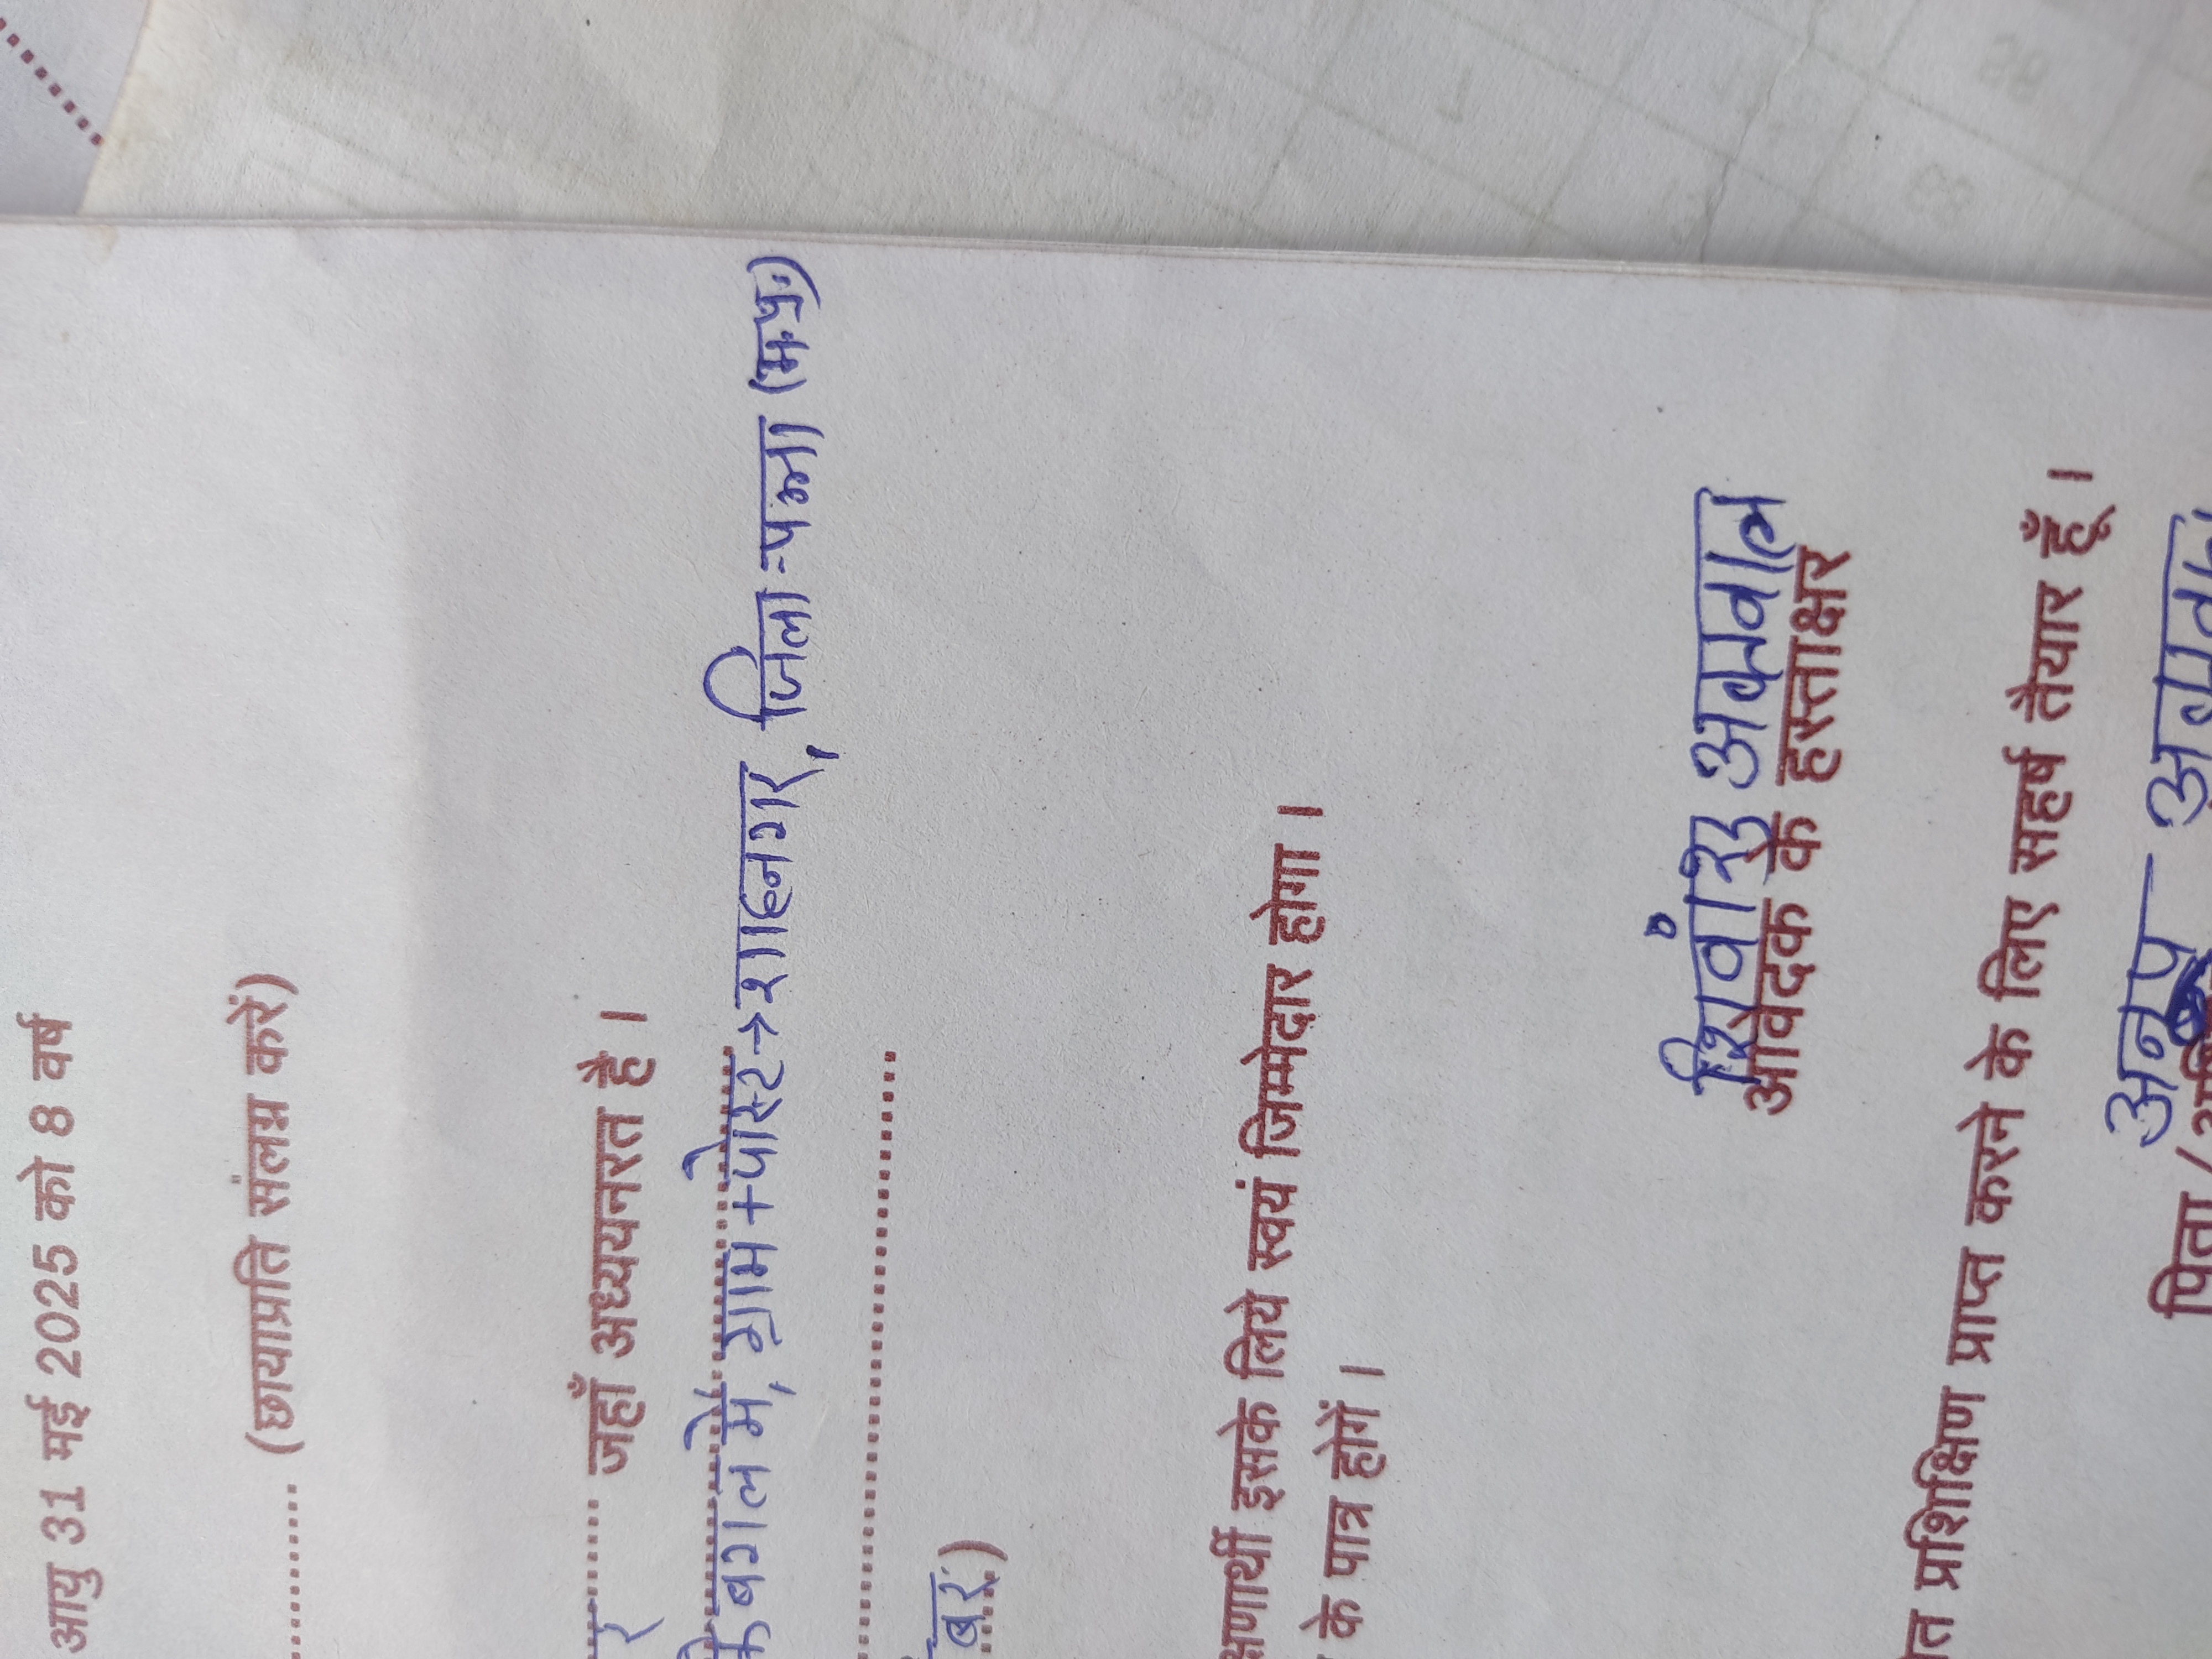 आयु 31 मई 2025 को 8 वर्ष
.......... (छायाप्रति संलग्न करें)
र ....... जहाँ अध्ययनरत है।
के बगल में, ग्राम + पोस्ट → शाहनगर, जिला - पन्ना (म.प्र.)
बर)
क्षणार्थी इसके लिये स्वयं जिम्मेदार होगा।
के पात्र होगें।
शिवांश अग्रवाल
आवेदक के हस्ताक्षर
त प्रशिक्षिण प्राप्त करने के लिए सहर्ष तैयार हूँ।
अनूप अग्रवाल
पिता /